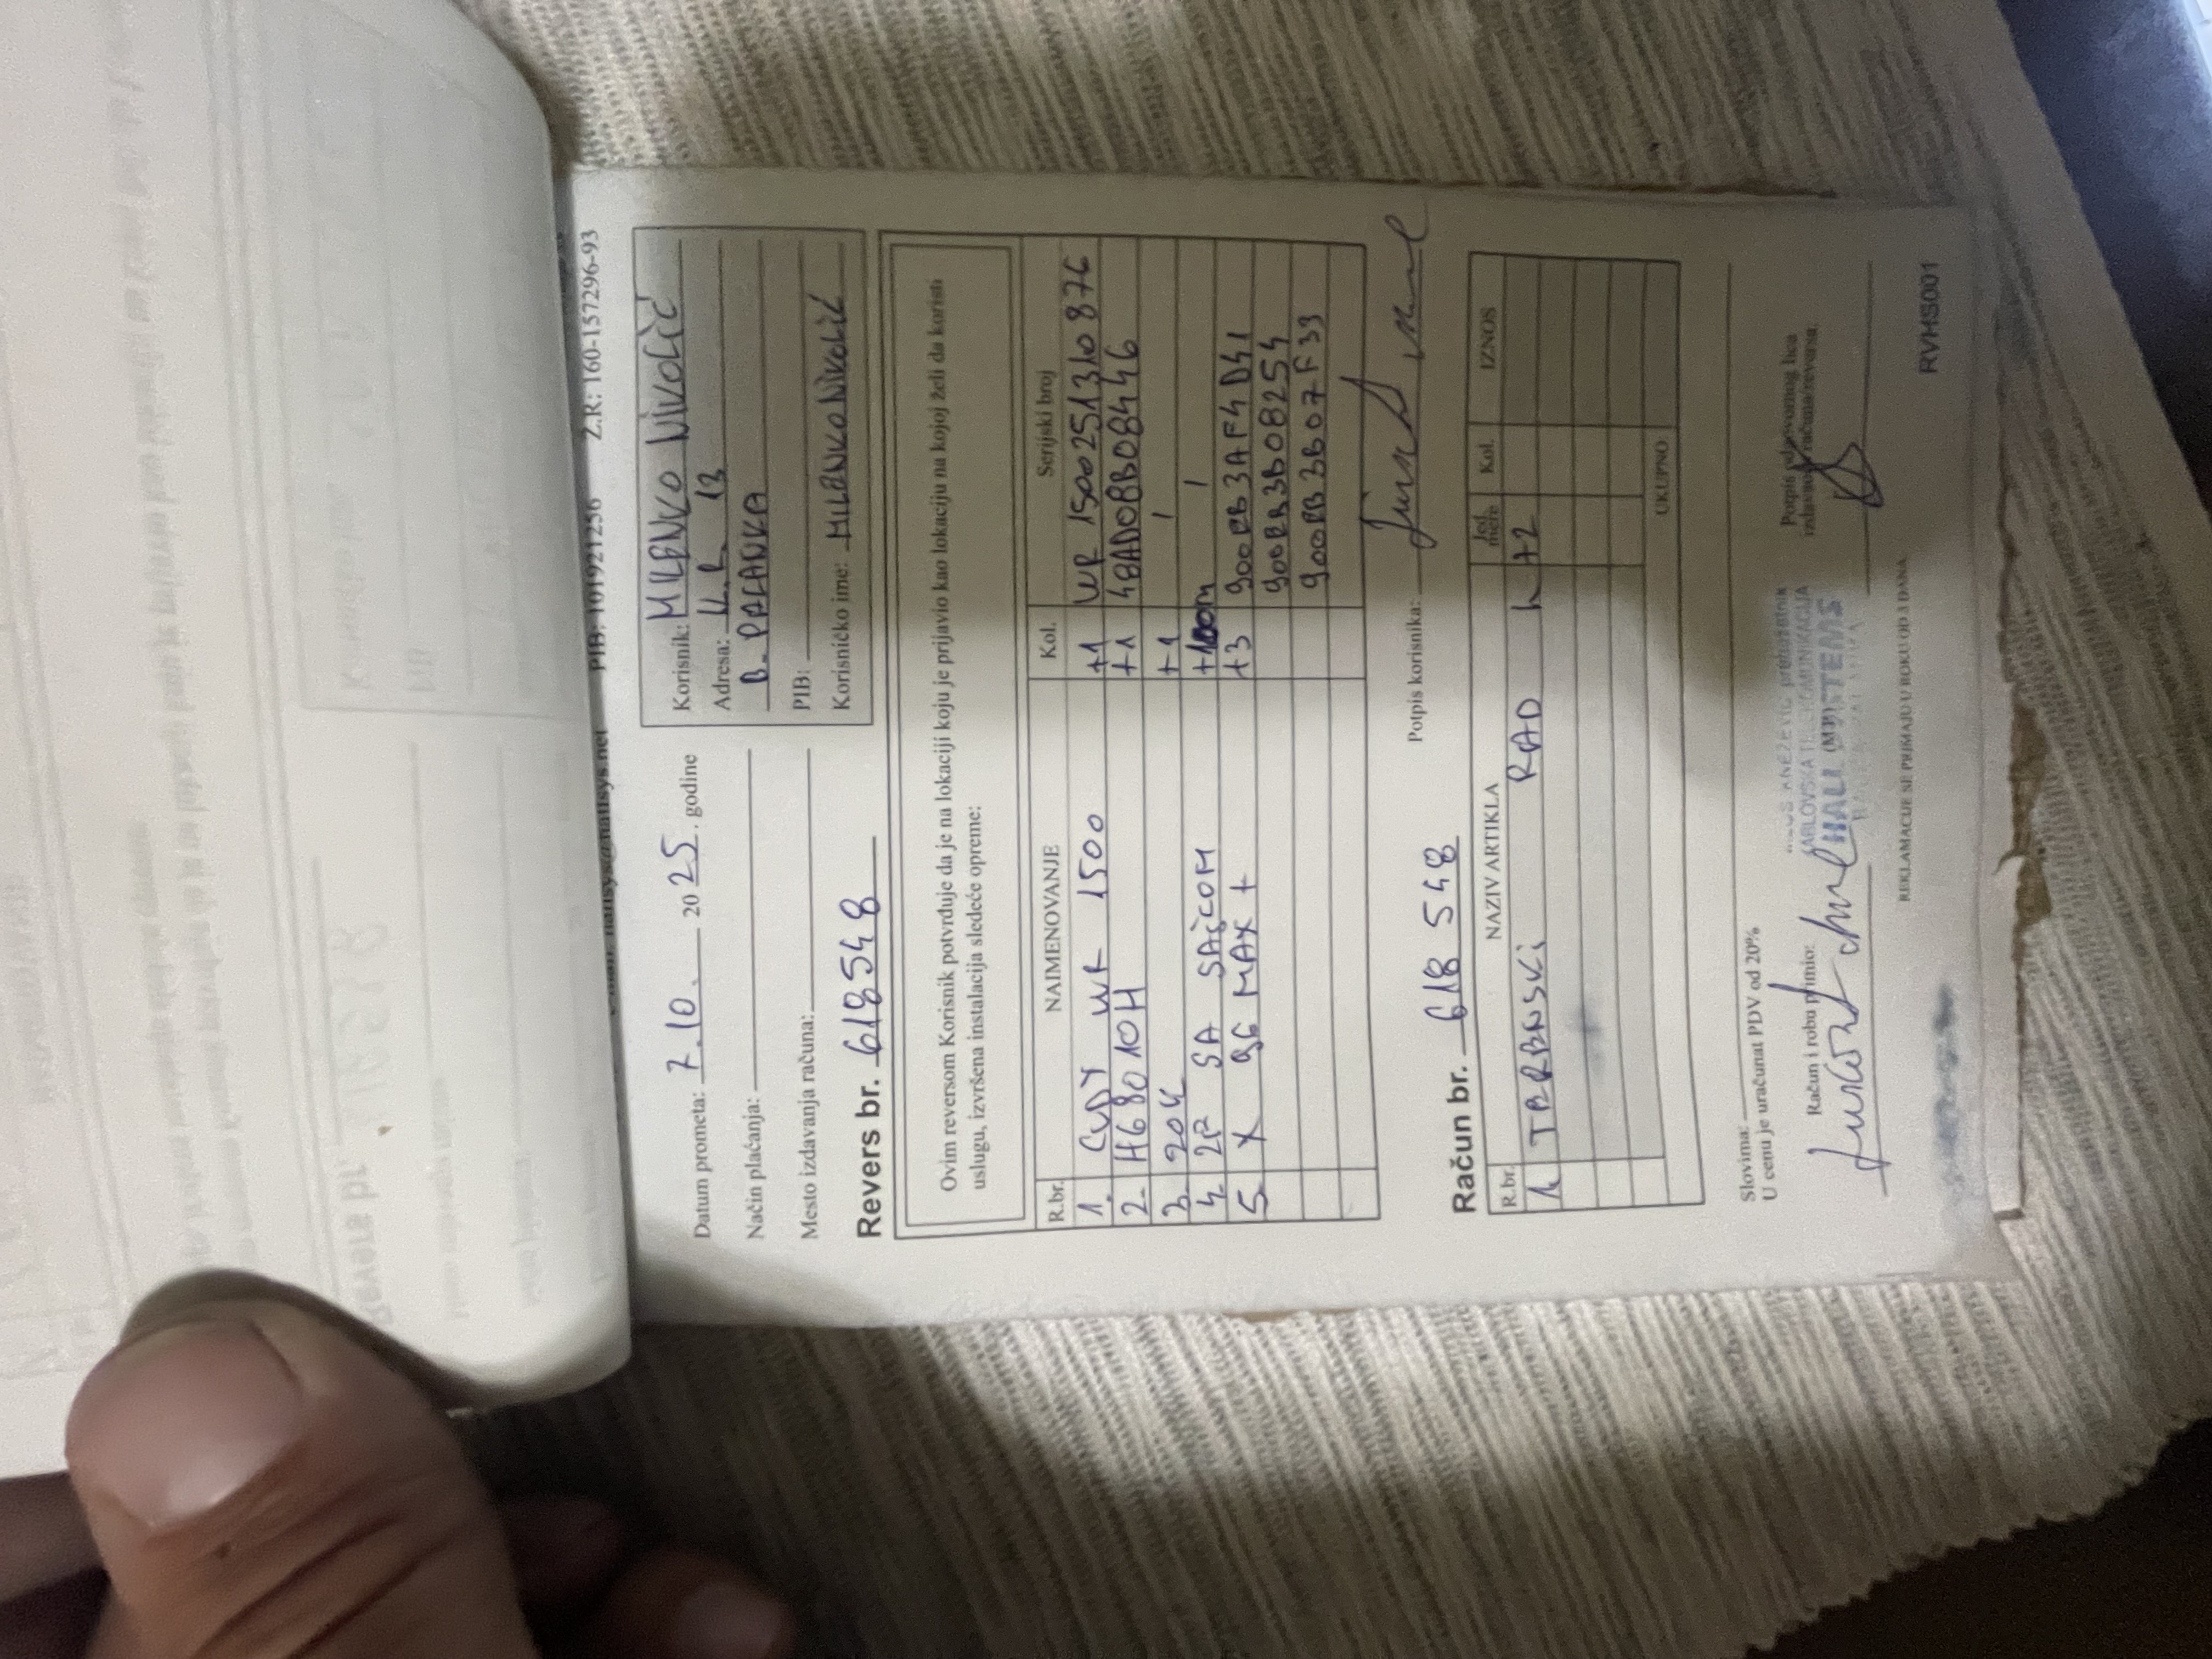 PIB: 101921256 Z.R: 160-157296-93
Datum prometa: 7.10. 2025. godine
Način plaćanja:
Mesto izdavanja računa:
Korisnik: MILENKO NIKOLIĆ
Adresa: 13
B. PALANKA
PIB:
Korisničko ime: MILENKONIKOLIĆ
Revers br. 618548
Ovim reversom Korisnik potvrđuje da je na lokaciji koju je prijavio kao lokaciju na kojoj želi da koristi
uslugu, izvršena instalacija sledeće opreme:
R.br. NAIMENOVANJE Kol. Serijski broj
1. CUDY WR 1500 +1 WR 1500251310876
2. H68010H +1 48AD08B08446
3. 20V +1 /
4. 2P SA SAJLOM +100m /
5 X 96 MAX + +3 900EB3AF4D41
900EB3B08254
900EB3B07F33
Potpis korisnika:
Račun br. 618 548
R.br. NAZIV ARTIKLA Jed. mere Kol. IZNOS
1 TERENSKI RAD h +2
UKUPNO
Slovima:
U cenu je uračunat PDV od 20%
Račun i robu primio:
KARLOVSKA TELEKOMUNIKACIJA
HALL SYSTEMS
Potpis odgovornog lica
izdavanja računa/reversa
REKLAMACIJE SE PRIMAJU U ROKU OD 3 DANA
RVHS001